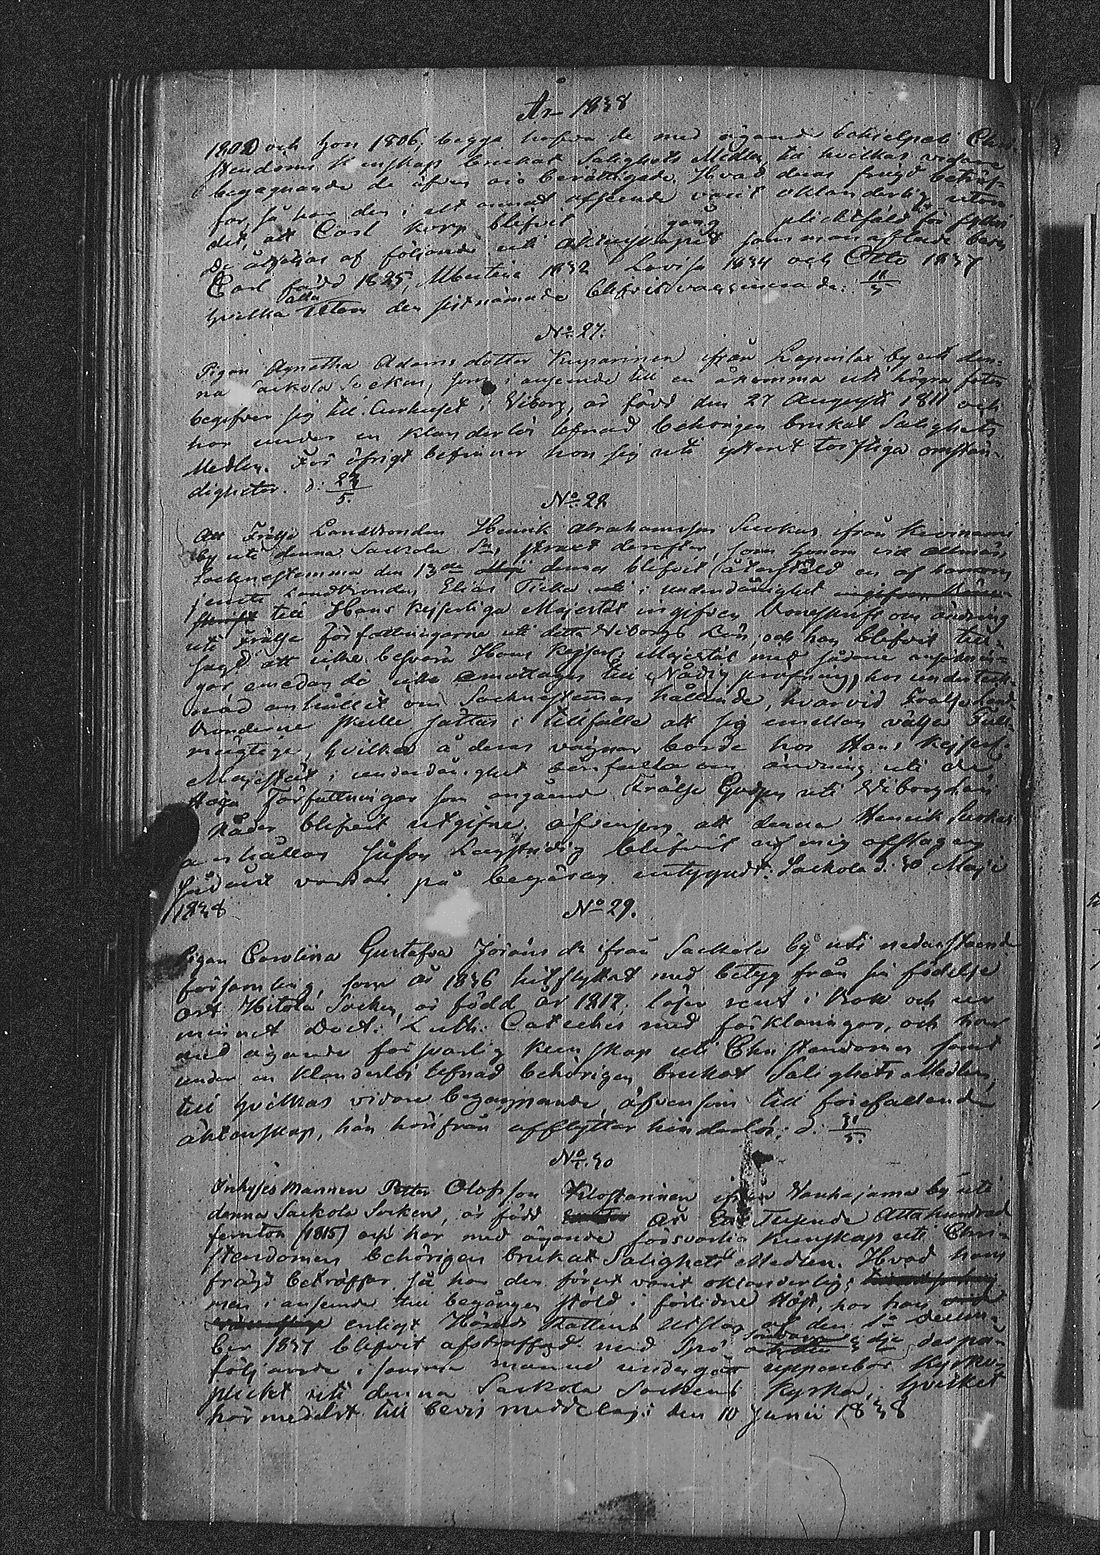 År 1838
1802 och hon 1806, begge hafva de med ägande behielpeli Chri-
stendoms kunskap brukat Salighets Medlen, til hvilkas vidare
begagnande de äfven äro berättigade. Hvad deras fregd beträf-
far så har den i alt annat afseende varit oklanderlig, utom
det, att Carl Korp blifvit gång plichtfäld för
De åtföljas af följande uti äktenskapet sammanaflade barn
Carl född 1825, Albertina 1832 Lovisa 1834 och Otto 1837
hvilka alla utom den sistnämnde blifvit vaccinerade: d. 11/5
No 27.
Pigan Agnetha Adams dotter Kuparinen ifrån Lapinlax by uti den-
na Sackola Socken, som i anseende till en åkomma uti högra foten
begifver sig till Curhuset i Viborg, är född den 27 Augusti 1811 och
har under en klanderlös lefnad behörigen brukat Salighets
Medlen. För öfrigt befinner hon sig uti ytterst torftiga omstän-
digheter. d. 23/5.
No 28
Att Frälse Landtbonden Henrik Abrahamsson Suikas ifrån
by uti denna Sackola Sn, straxt derefter, som honom vid allmän
Socknestämma den 13de dennes blifvit återstäld en af
jemte Landtbonden Elias Ticka i underdånighet
till Hans Kejserliga Majestät ingifven Böneskrift om ändring
uti Frälse författningarne uti detta Viborgs Län, och han blifvit till-
sagd att icke besvära Hans Kejserl. Majestät med sådane ansöknin-
gar emedan de icke emottages till Nådig pröfning, hos undertek-
nad anhållit om Socknestämmas hållande, hvarvid Frälse Landt-
bönderne skulle sättas i tillfälle att sig emellan välja Full-
mägtige, hvilka å deras vägnar borde hos Hans Kejserl.
Majestät i underdånighet bönfalla om ändring uti de
Höga Författningar som angående Frälse Godsen uti Viborgs län
i Nåder blifvit utgifne, äfvensom att denne Henrik Suikas
anhållan såsom Lagstridig blifvit af mig afslagen
sådant varder på begäran intygadt: Sackola d. 30 Maji
1838
No 29.
Pigan Carolina Gustafva Jörans dr ifrån Sackola by uti nedanstående
församling, som år 1836 hitflyttat med betyg från sin födelse
ort Hitola Socken, är född år 1817, läser rent i Bok och ur
minnet Doct: Luth: Cateches med förklaringar, och har
med ägande försvarlig kunskap uti Christendomen samt
under en klanderlös lefnad behörigen brukat Salighets Medlen,
till hvilkas vidare begagnande, äfvensom till förefallande
äktenskap, hon härifrån afflyttar hinderlös: d. 31/5.
No 30
Inhyses Mannen Petter Olofsson Kilostarinen ifrån Vanhajama by uti
denna Sackola Socken, är född År Ett Tusende Åttahundrad
femton (1815) och har med ägande försvarlig kunskap uti Chri-
stendomen behörigen brukat Salighets Medlen. Hvad hans
fregd beträffar så har den förut varit oklanderlig;
men i anseende till begången stöld i förlidne Höst, har han
enligt Härads Rättens Utslag af den 1a Decem-
ber 1837 blifvit afstraffad med Spö söndagen 3dje derpå
följande i samma månad undergått uppenbar Kyrko-
plikt uti denna Sackola Sockens kyrka; hvilket
härmedelst till bevis meddelas: den 10 Junii 1838